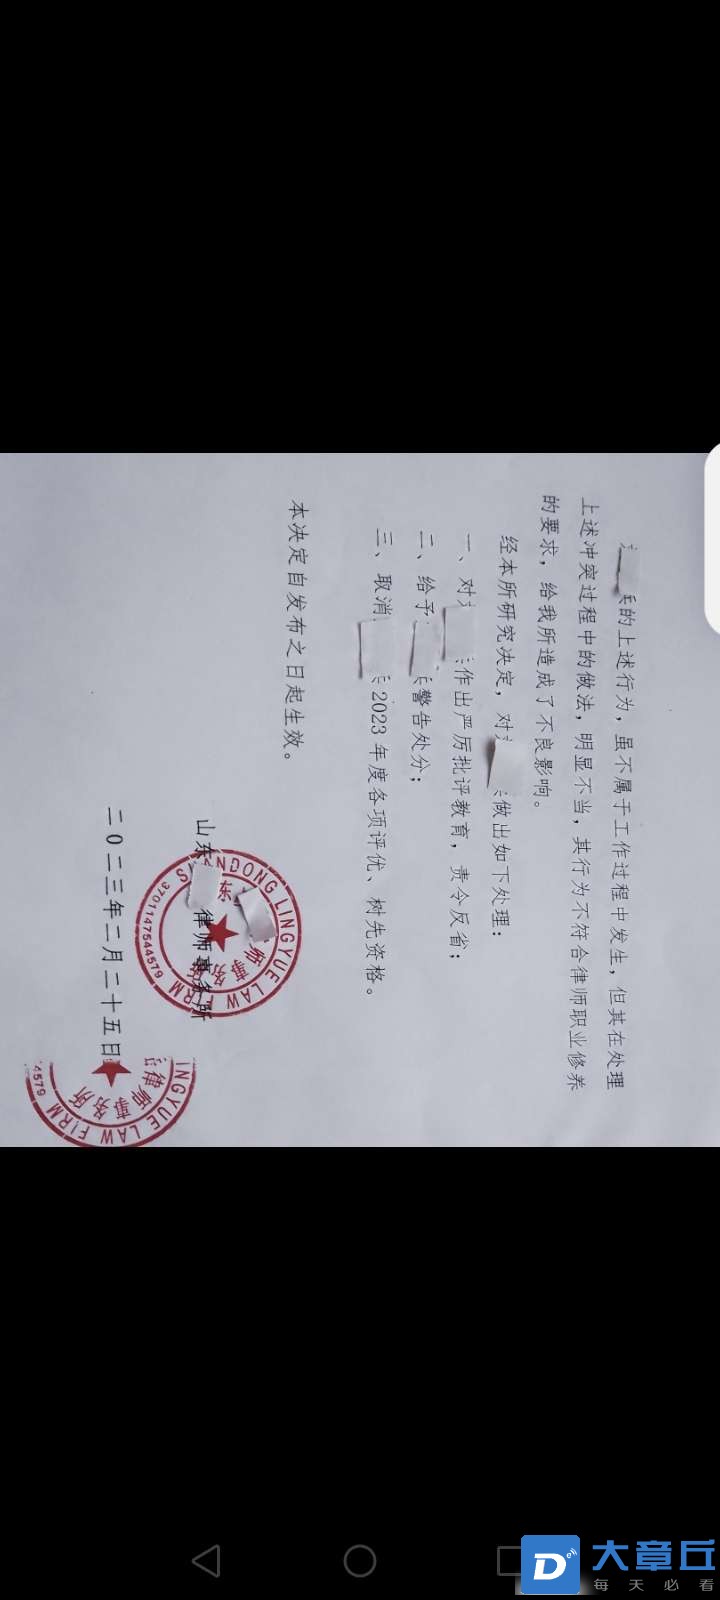 的上述行为，虽不属于工作过程中发生，但其在处理
上述冲突过程中的做法，明显不当，其行为不符合律师职业修养
的要求，给我所造成了不良影响。
经本所研究决定，对 做出如下处理：
一、对 作出严厉批评教育，责令反省；
二、给予 警告处分；
三、取消 2023 年度各项评优、树先资格。
本决定自发布之日起生效。
山东 律师事务所
SHANDONG LINGYUE LAW FIRM
东 师事务所
3701147544579
二0二三年二月二十五日
INGYUE LAW FIRM
律师事务所
4579
大章丘
每天必看